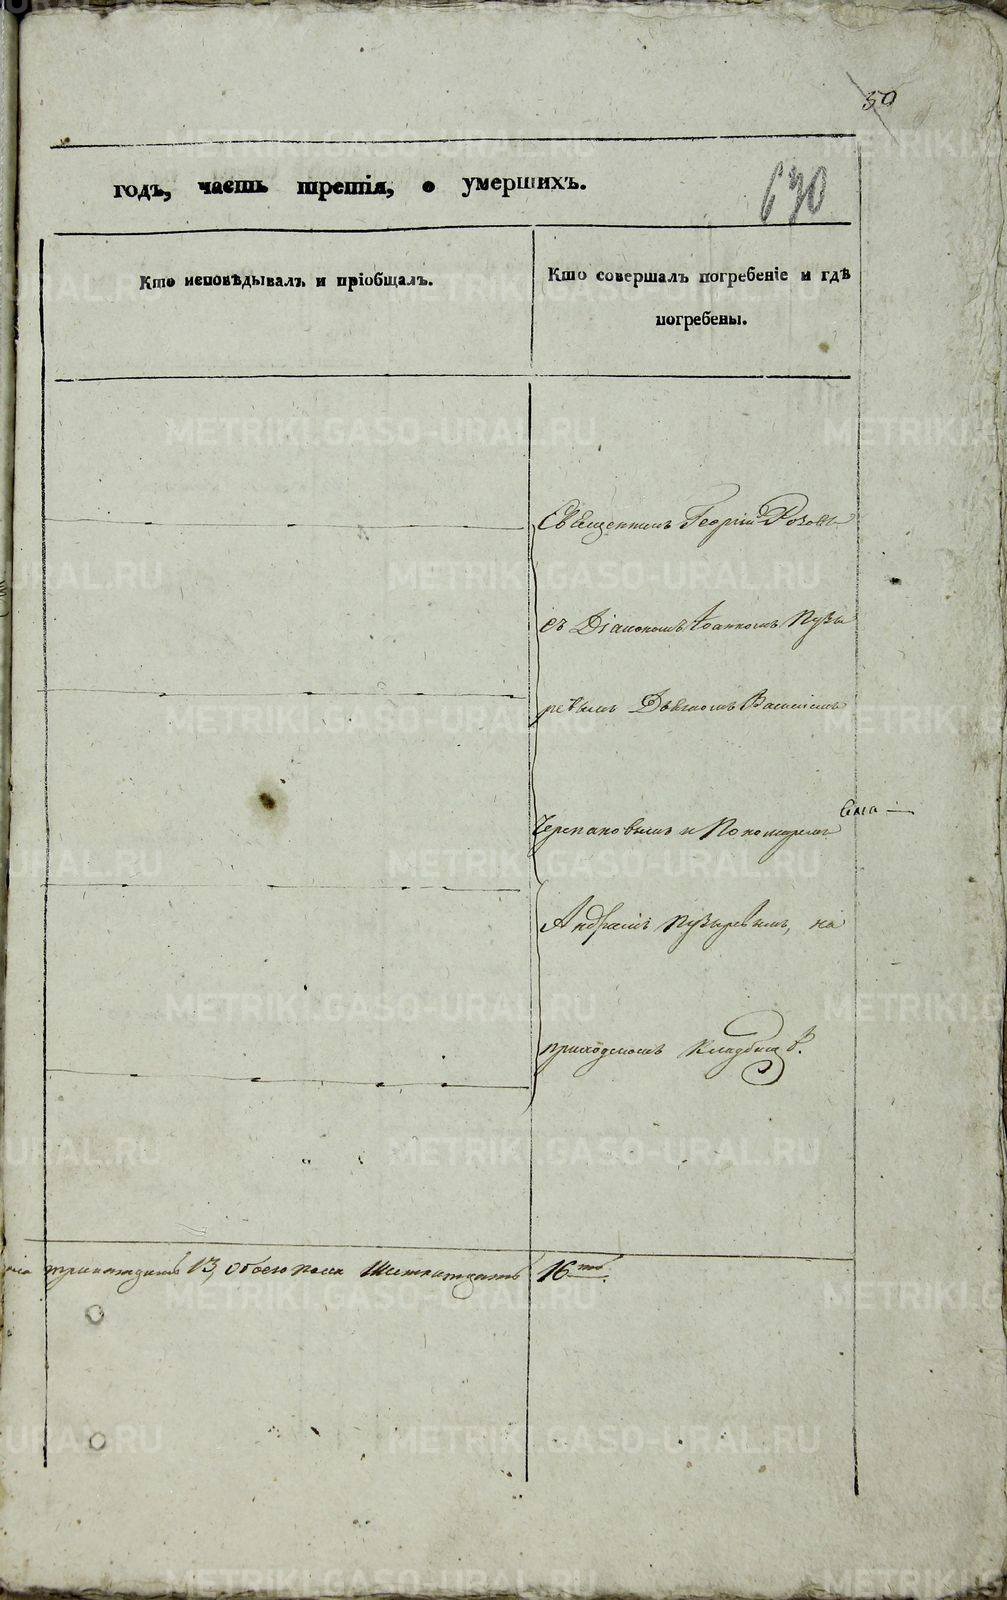 50
630
годъ, часть третія, о умершихъ.
Кто исповѣдывалъ и пріобщалъ.
Кто совершалъ погребеніе и гдѣ
погребены.
Священникъ Георгій
съ Діакономъ Іоанномъ Пузы
ревымъ Дьячкомъ Василіемъ
Черпановымъ и Пономаремъ
Андреемъ Пузыревымъ, на
приходскомъ кладбищѣ.
тринатцать 13, обоего пола Шестнатцать 16ть.
METRIKI.GASO-URAL.RU